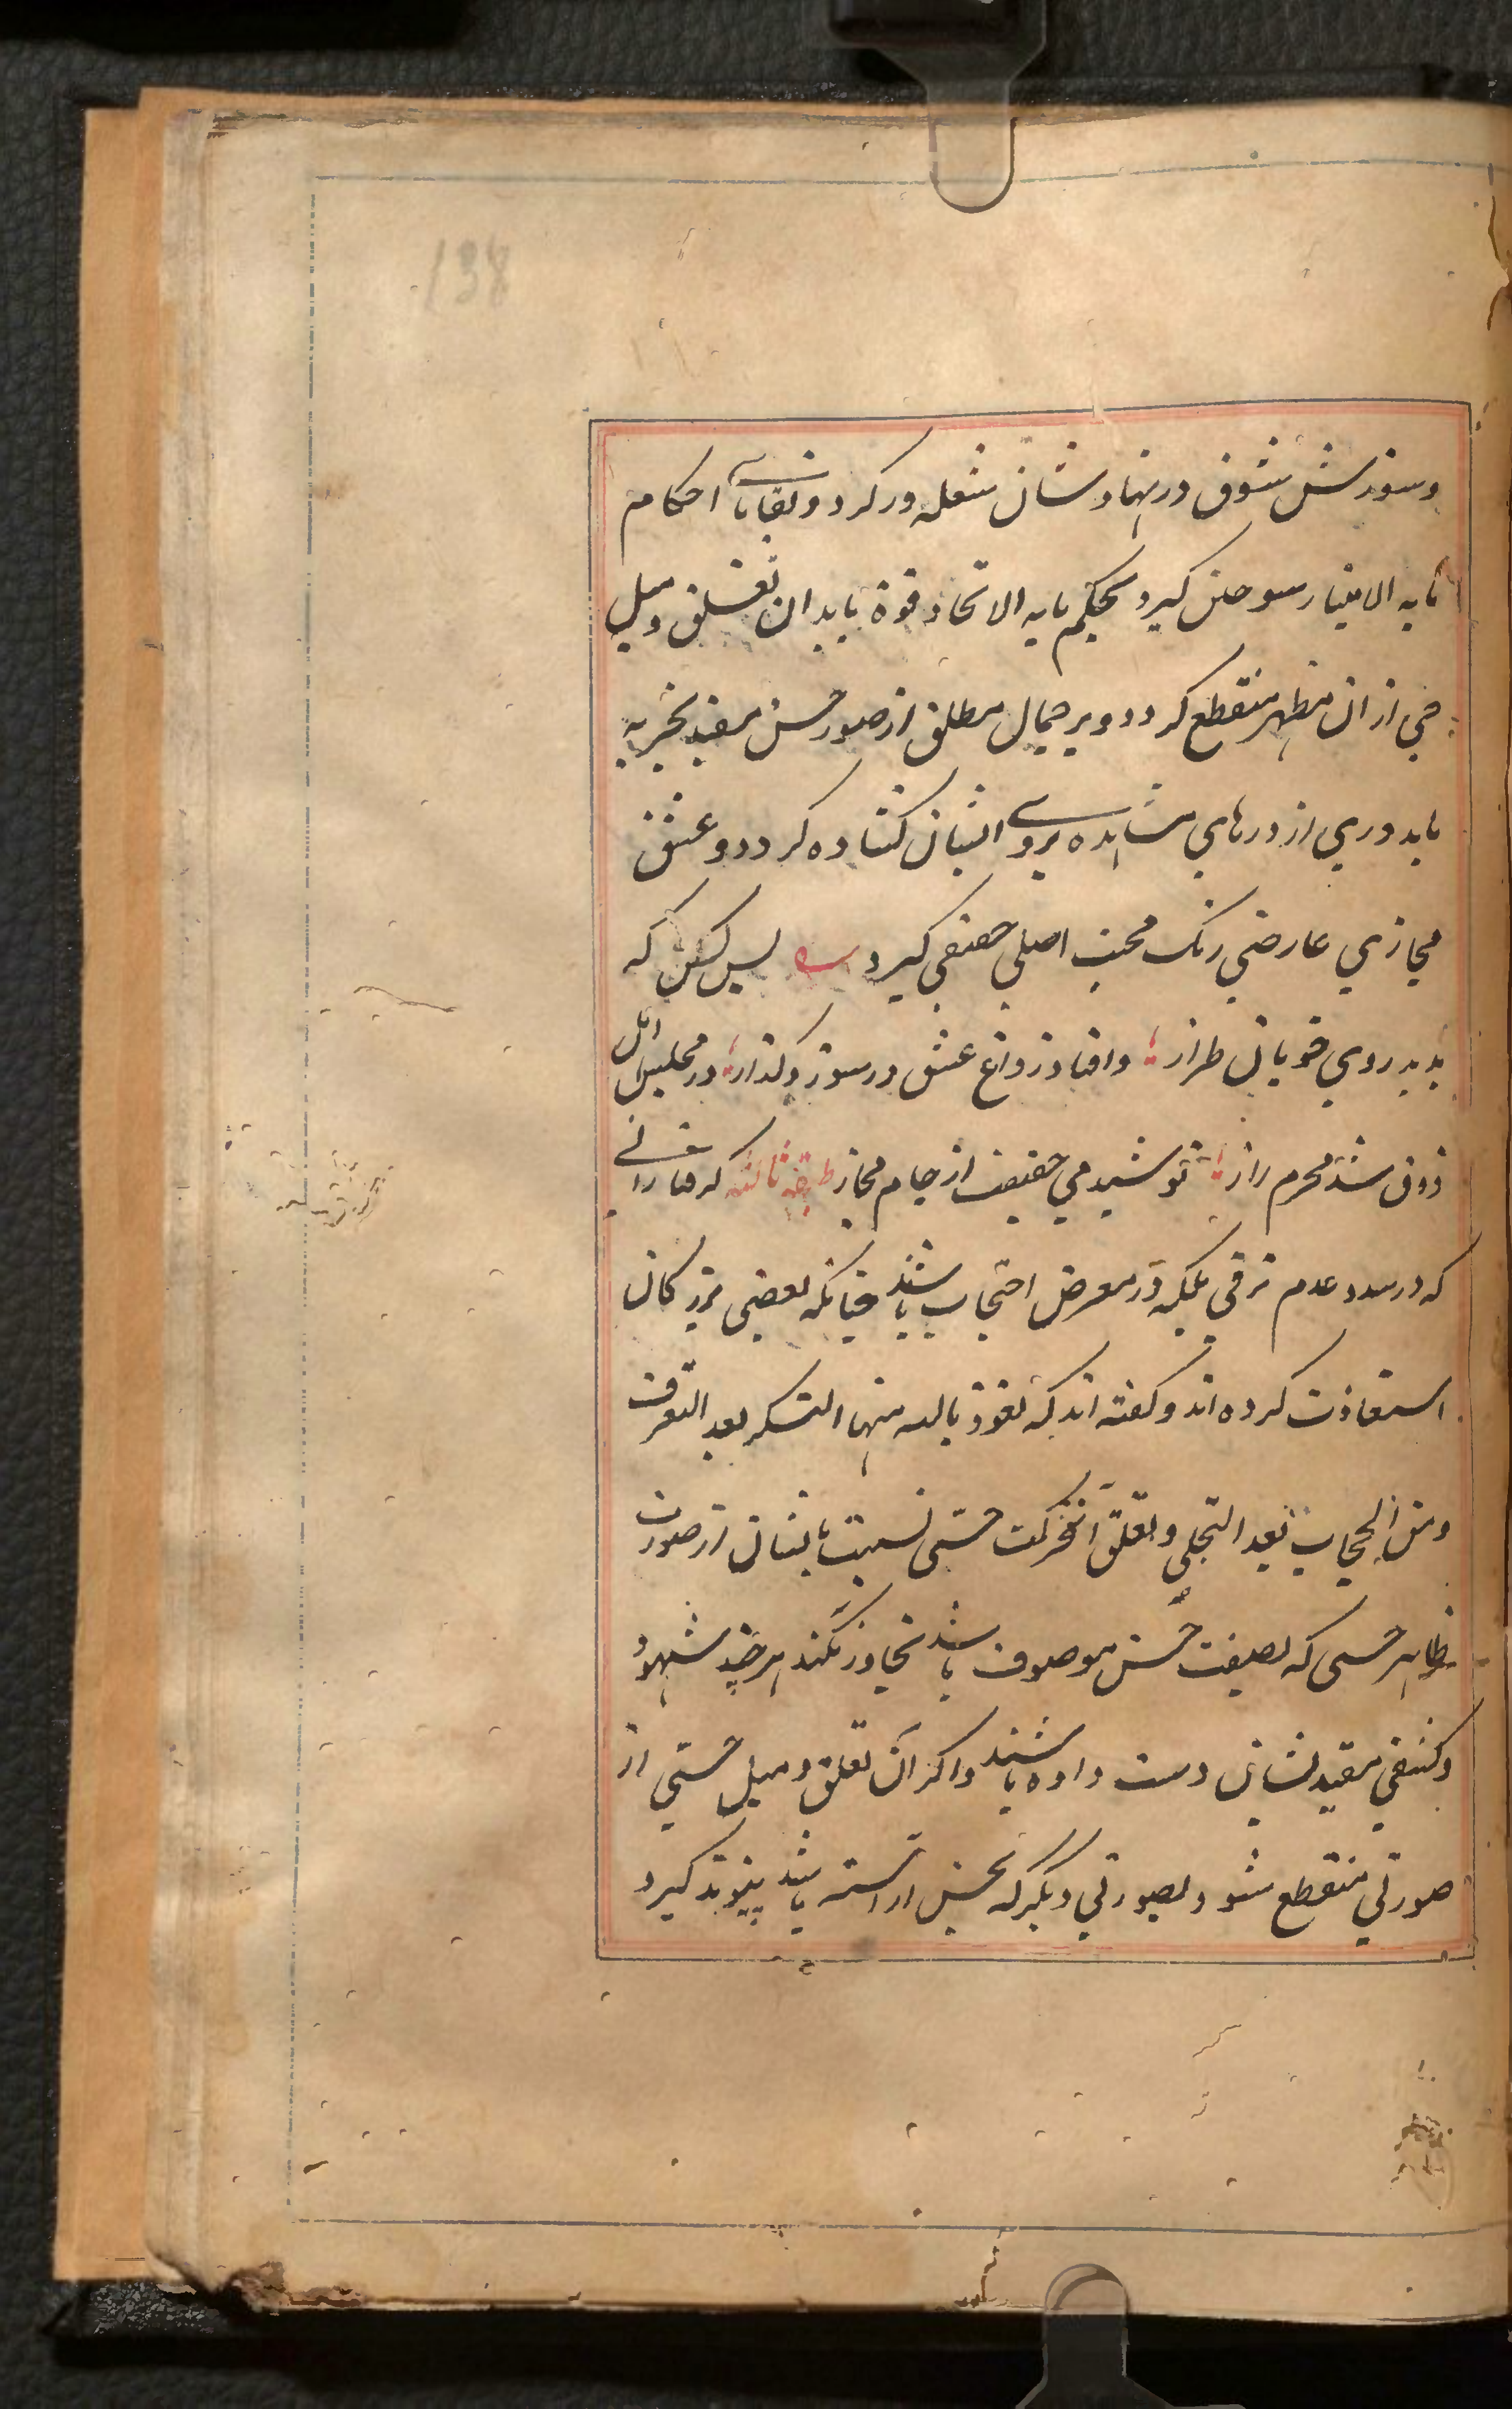 138
وسوزش شوق در نهاد شان شعله ور گردد و بقایای احکام
ما به الامتیاز سوختن گیرد و بحکم ما به الاتحاد قوة یابد ان تعلق و میل
حبی از ان مظهر منقطع گردد و سر جمال مطلق از صور حسن مقید تجرید
یابد و دری از درهای مشاهده بروی ایشان گشاده گردد و عشق
مجازی عارضی رنگ محبت اصلی حقیقی گیرد بس کس که
بدید روی خوبان طراز وافتاد ز داغ عشق در سوز و گداز در مجلس اهل
ذوق شد محرم راز نوشید می حقیقت از جام مجاز طبقه ثالثه گرفتارانی
که در صدد عدم ترقی بلکه در معرض احتجاب باشند چنانکه بعضی بزرگان
استعاذت کرده اند و گفته اند که نعوذ بالله من التنکر بعد التعرف
ومن الحجاب بعد التجلی و تعلق آن حرکت حبی نسبت بایشان از صورت
ظاهر حسی که بصفت حسن موصوف باشد تجاوز نکند هر چند شهود
و کشفی مقید شان دست داده باشد و اگر آن تعلق و میل حبی از
صورتی منقطع شود بصورتی دیگر که بحسن اراسته باشد پیوند گیرد